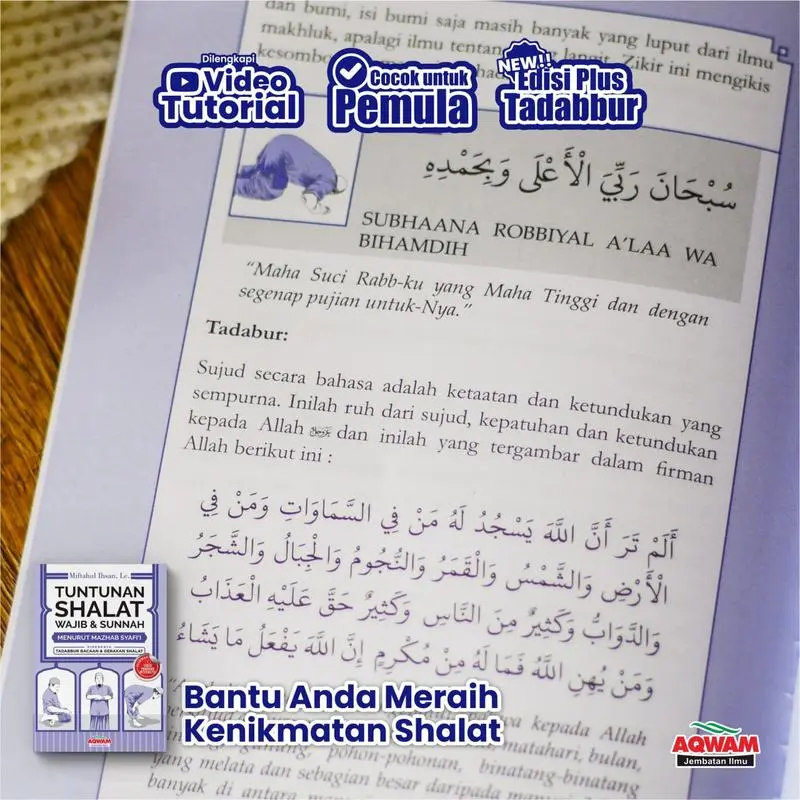 dan bumi, isi bumi saja masih banyak yang luput dari ilmu
makhluk, apalagi ilmu langit. Zikir ini mengikis
Dilengkapi
Video
Tutorial
Cocok untuk
Pemula
NEW!!
Edisi Plus
Tadabbur
سُبْحَانَ رَبِّيَ الْأَعْلَى وَبِحَمْدِهِ
SUBHAANA ROBBIYAL A'LAA WA
BIHAMDIH
"Maha Suci Rabb-ku yang Maha Tinggi dan dengan
segenap pujian untuk-Nya."
Tadabur:
Sujud secara bahasa adalah ketaatan dan ketundukan yang
sempurna. Inilah ruh dari sujud, kepatuhan dan ketundukan
kepada Allah dan inilah yang tergambar dalam firman
Allah berikut ini :
أَلَمْ تَرَ أَنَّ اللَّهَ يَسْجُدُ لَهُ مَنْ فِي السَّمَاوَاتِ وَمَنْ فِي
الْأَرْضِ وَالشَّمْسُ وَالْقَمَرُ وَالنُّجُومُ وَالْجِبَالُ وَالشَّجَرُ
وَالدَّوَابُّ وَكَثِيرٌ مِنَ النَّاسِ وَكَثِيرٌ حَقَّ عَلَيْهِ الْعَذَابُ
وَمَنْ يُهِنِ اللَّهُ فَمَا لَهُ مِنْ مُكْرِمٍ إِنَّ اللَّهَ يَفْعَلُ مَا يَشَاءُ
kepada Allah
matahari, bulan,
pohon-pohonan, binatang-binatang
yang melata dan sebagian besar daripada
banyak di antara
Miftahul Ihsan, Lc.
TUNTUNAN
SHALAT
WAJIB & SUNNAH
MENURUT MAZHAB SYAFI'I
TADABBUR BACAAN & GERAKAN SHALAT
AQWAM
Bantu Anda Meraih
Kenikmatan Shalat
AQWAM
Jembatan Ilmu